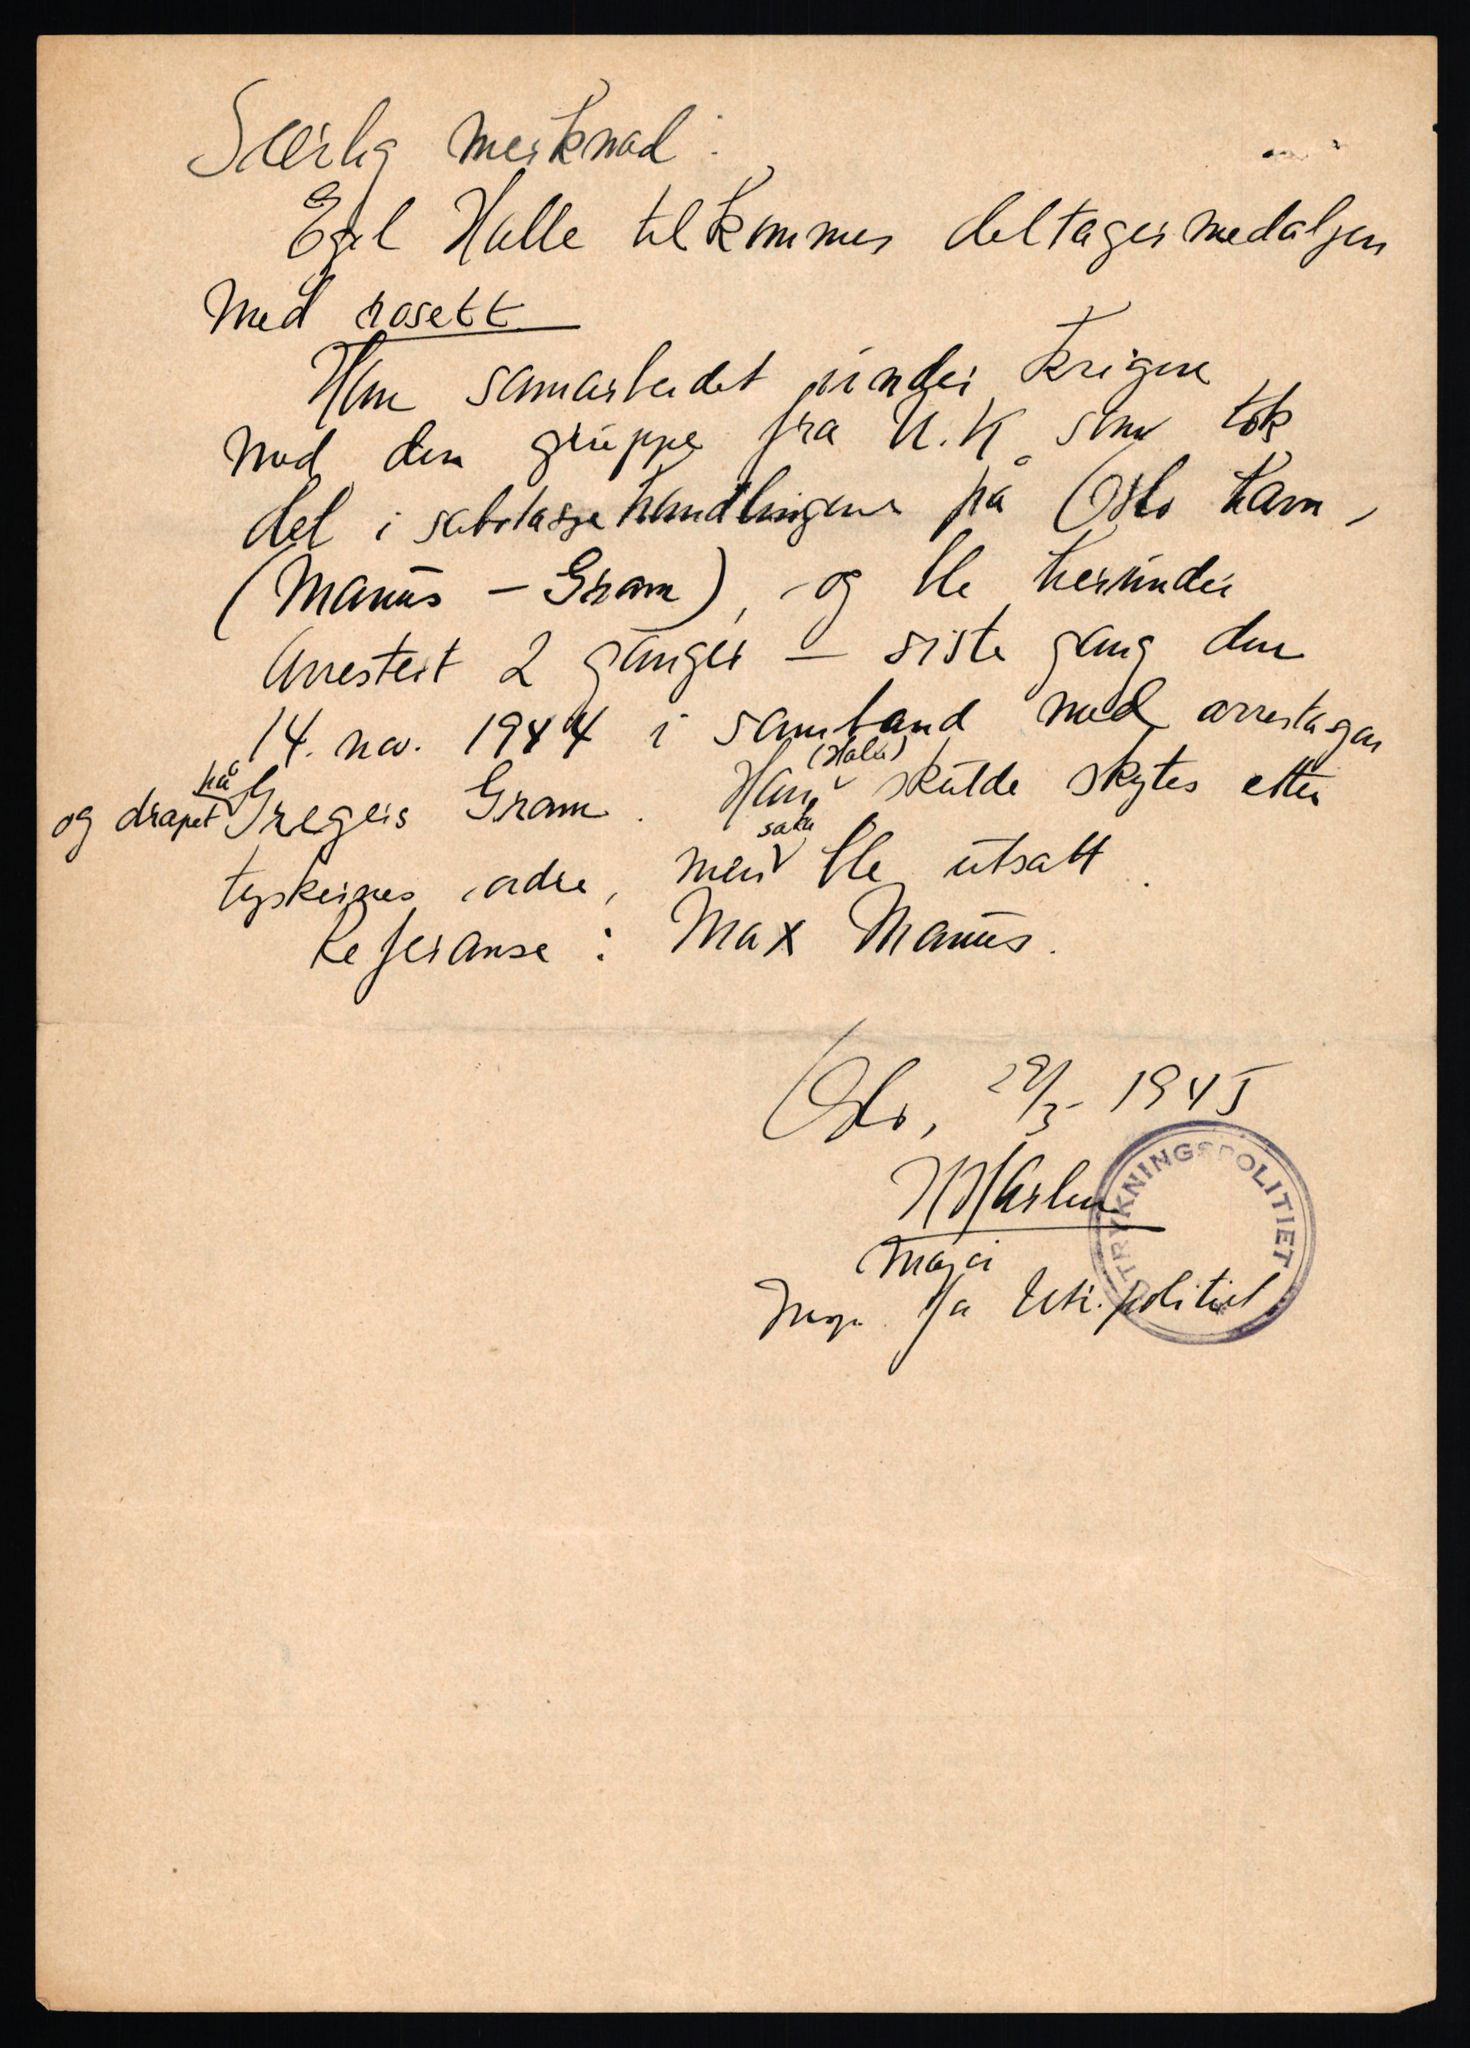 Særlig merknad:
Egil Halle tilkommes deltagermedaljen
med rosett
Han samarbeidet under krigen
med den gruppe fra U.K. som tok
del i sabotasjehandlingene på Oslo havn,
(Manus – Gram), og ble herunder
arrestert 2 ganger – siste gang den
14. nov. 1944 i samband med arrestasjon
og drapet på Gregers Gram. Han (Halle) skulde skytes etter
tyskernes ordre, men saken ble utsatt.
Referanse: Max Manus.
Oslo, 29/5 1945
major
for Utr.politiet
UTRYKNINGSPOLITIET